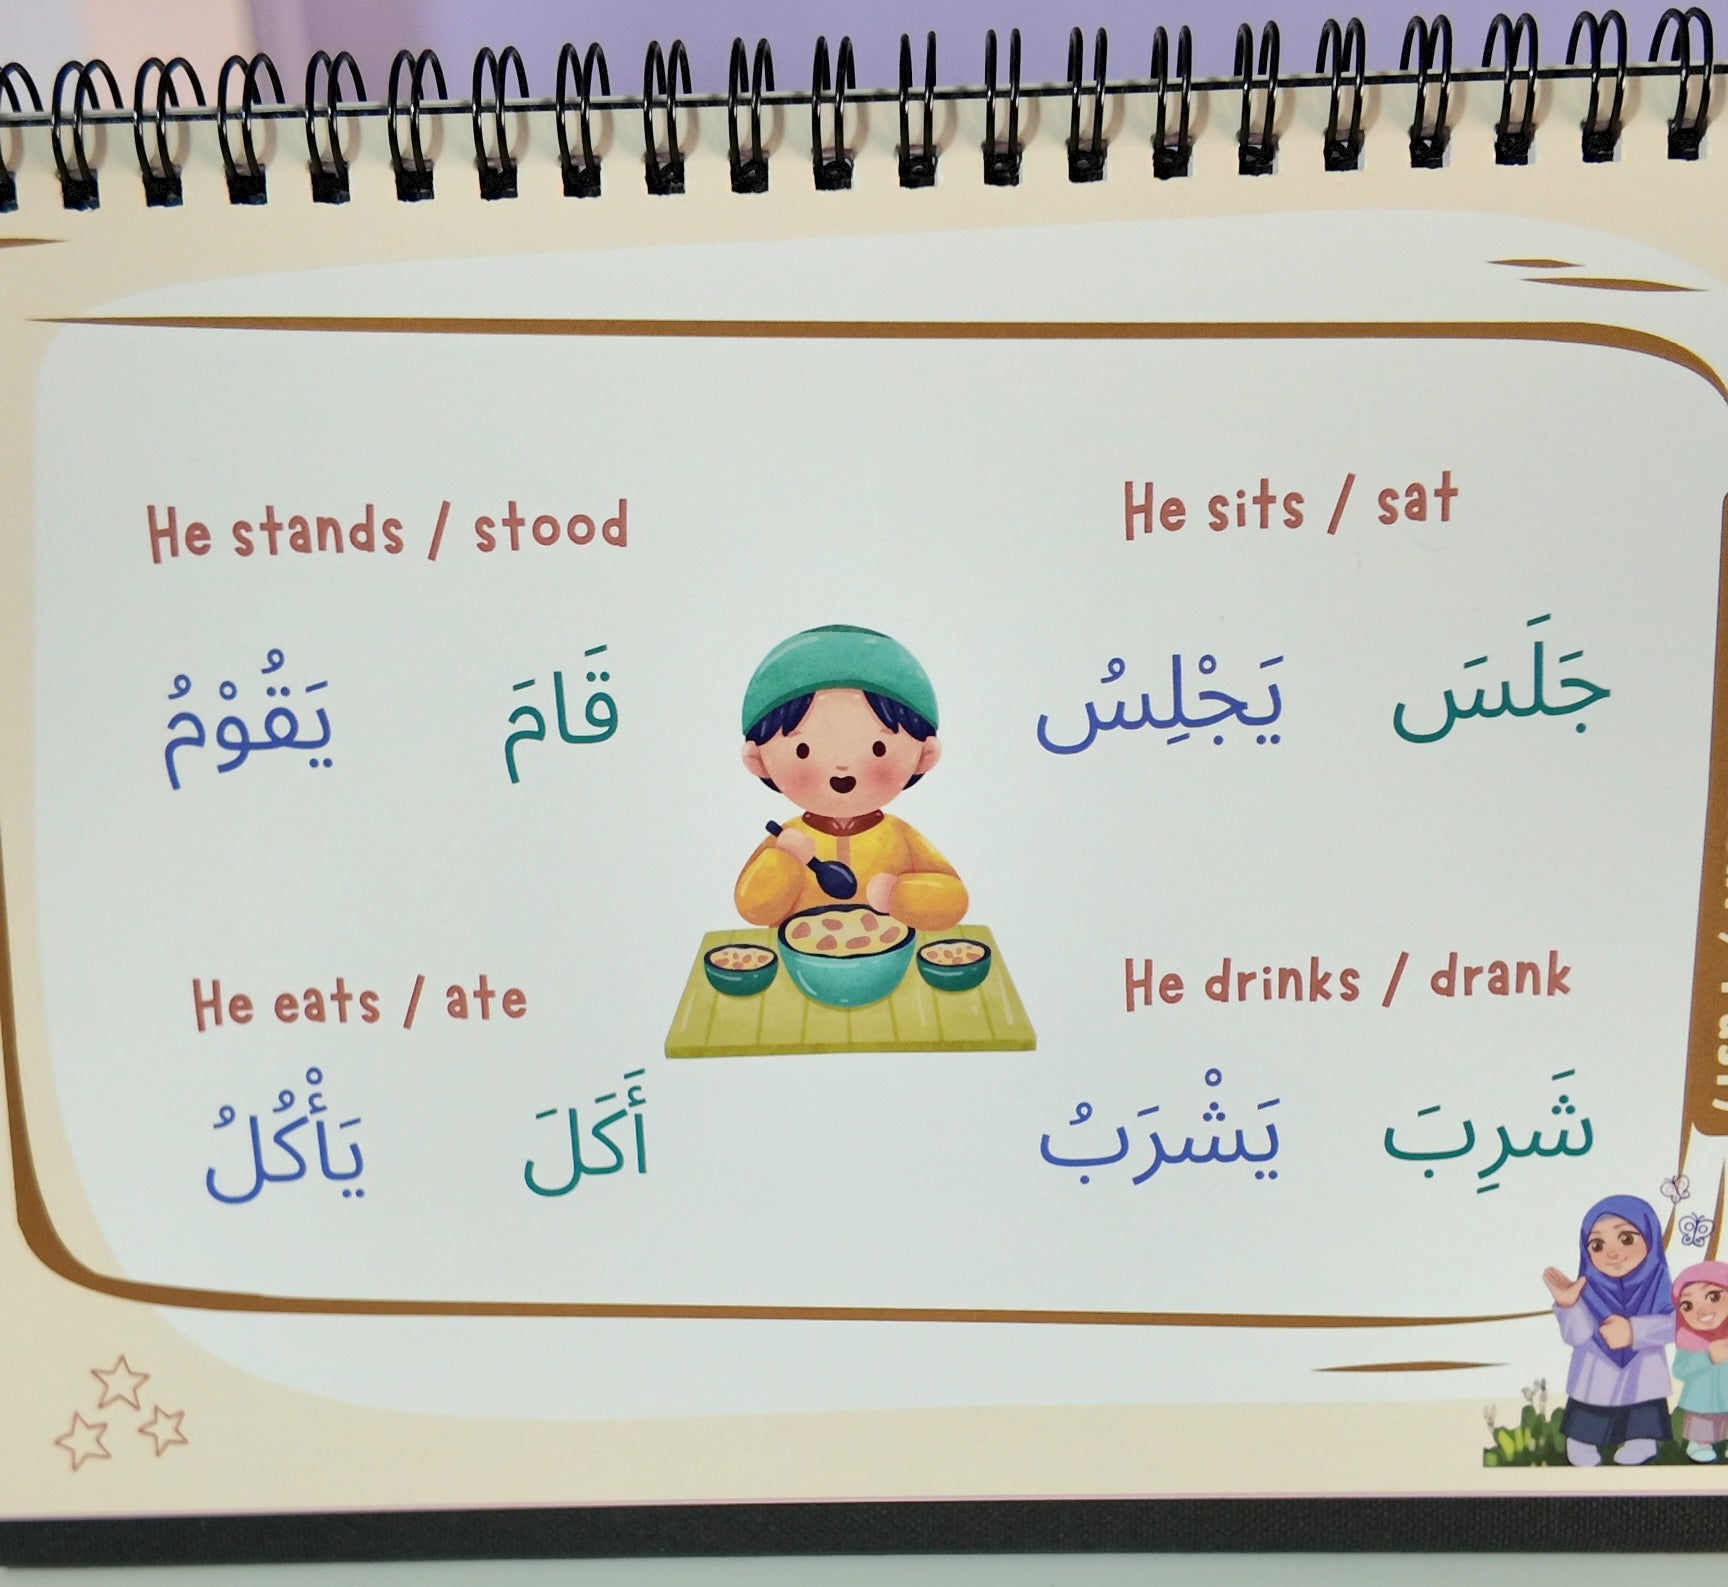 He stands / stood
قَامَ يَقُوْمُ
He sits / sat
جَلَسَ يَجْلِسُ
He eats / ate
أَكَلَ يَأْكُلُ
He drinks / drank
شَرِبَ يَشْرَبُ